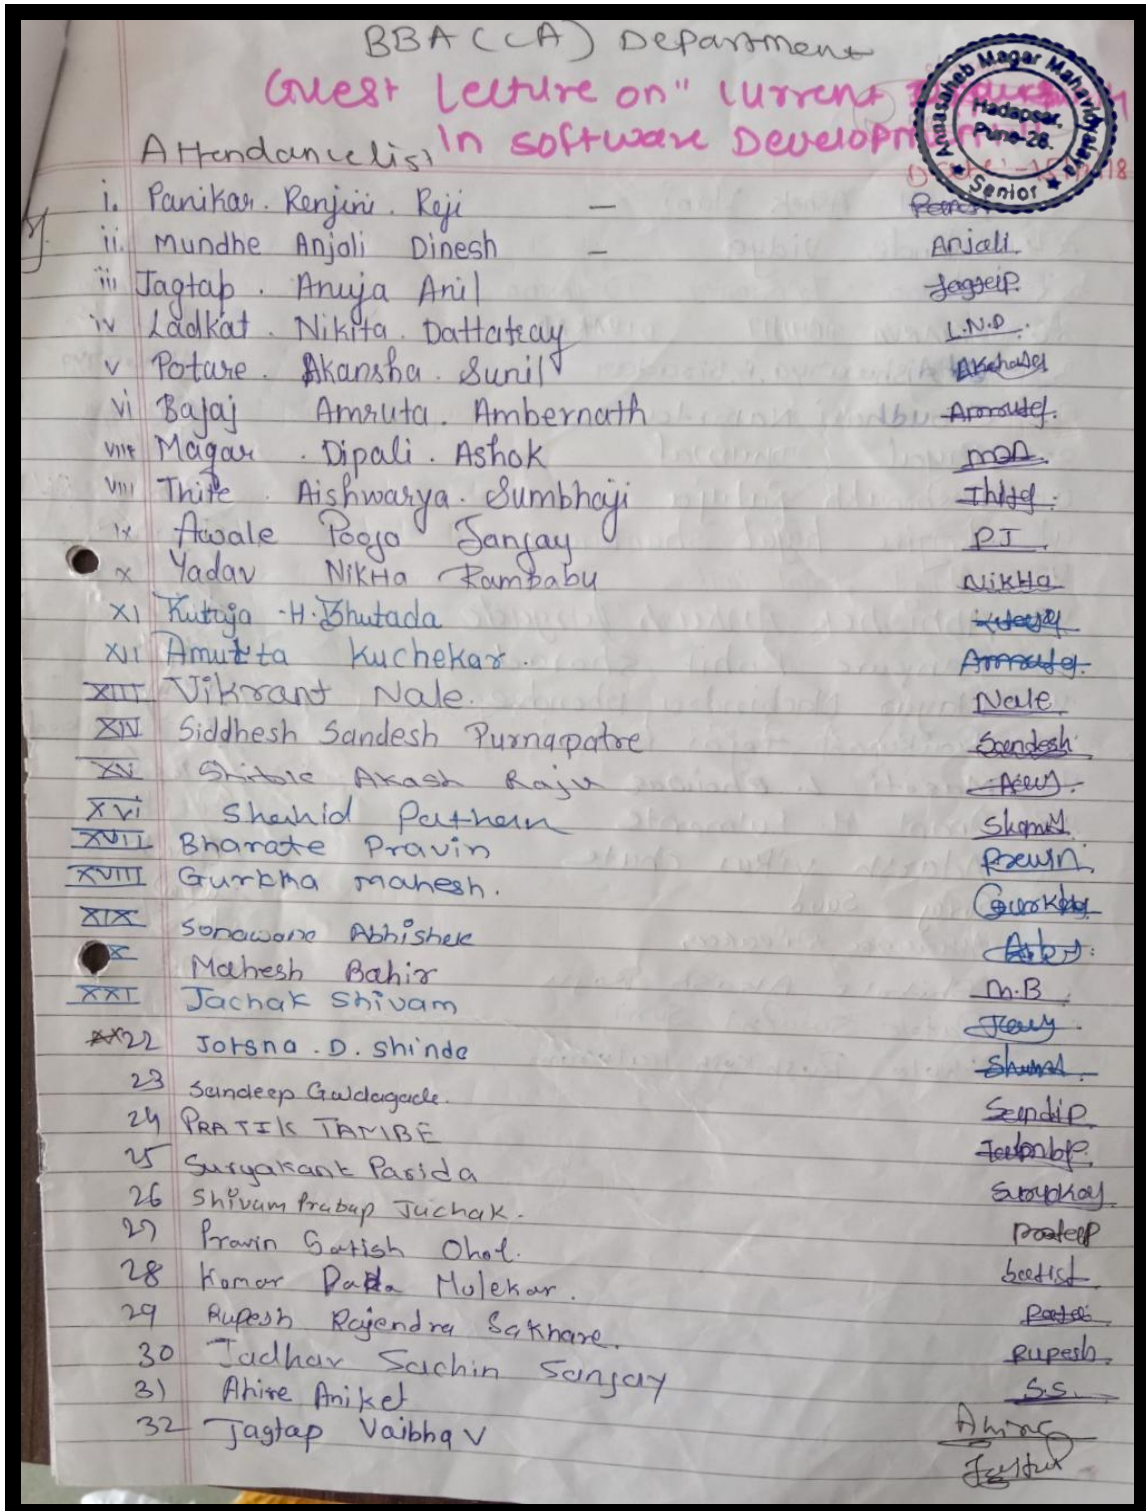 BBA (CA) Department
Guest Lecture on " Current
In Software Development
Annasaheb Magar Mahavidyalaya
Hadapsar,
Pune-28.
Senior
Attendance list
i. Panikar. Renjini. Reji –
ii. Mundhe Anjali Dinesh – Anjali
iii Jagtap. Anuja Anil
iv Ladkat. Nikita. Dattatray L.N.D.
v Potare. Akansha. Sunil
vi Bajaj Amruta. Ambernath
viii Magar. Dipali. Ashok
VIII Thite. Aishwarya. Sumbhaji
ix Awale Pooja Sanjay
x Yadav Nikita Rambabu Nikita
XI Rutuja H. Bhutada
XII Amutta Kuchekar.
XIII Vikrant Nale. Nale
XIV Siddhesh Sandesh Purnapatre Sandesh
XV Shitole Akash Raju
XVI Shahid Pathan
XVII Bharate Pravin
XVIII Gurkha Mahesh.
XIX Sonawane Abhishek
X Mahesh Bahir M.B
XXI Jachak Shivam
22 Jotsna. D. Shinde
23 Sandeep Galdagade.
24 PRATIK TAMBE
25 Suryakant Parida
26 Shivam Pratap Jachak.
27 Pravin Satish Ohol.
28 Komar Dada Mulekar.
29 Rupesh Rajendra Sakhare.
30 Jadhav Sachin Sanjay Rupesh.
31 Ahire Aniket S.S.
32 Jagtap Vaibhav